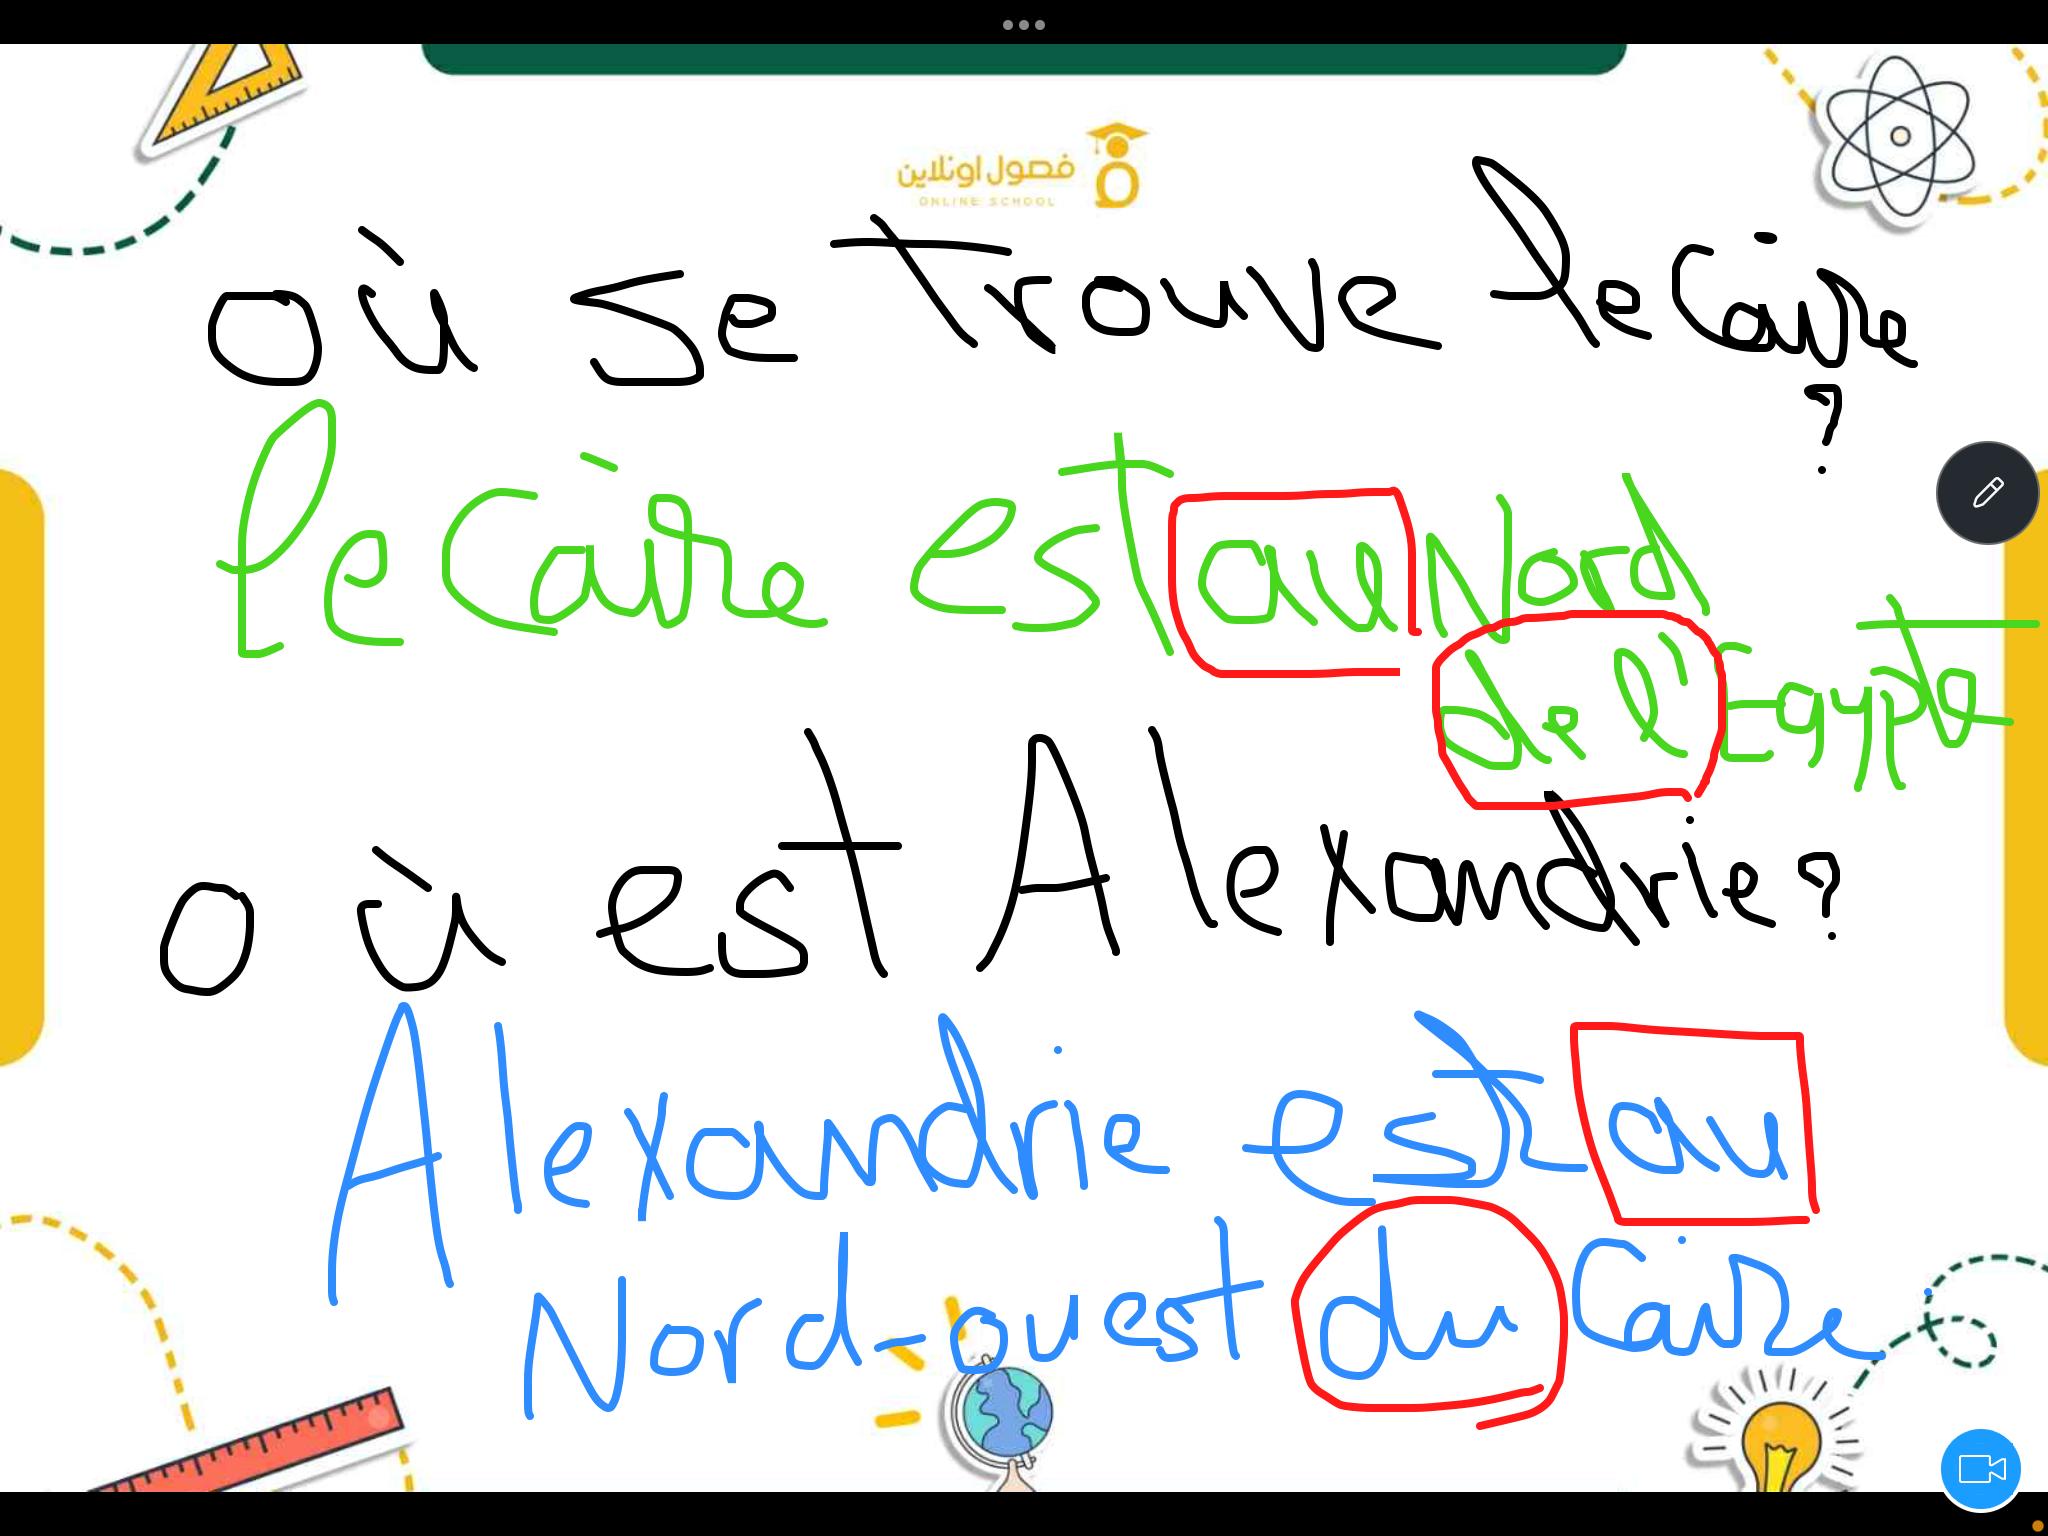 فصول اونلاين
ONLINE SCHOOL
où se trouve le Caire
?
le Caire est au Nord
de l'Egypte
où est Alexandrie?
Alexandrie est au
Nord-ouest du Caire.